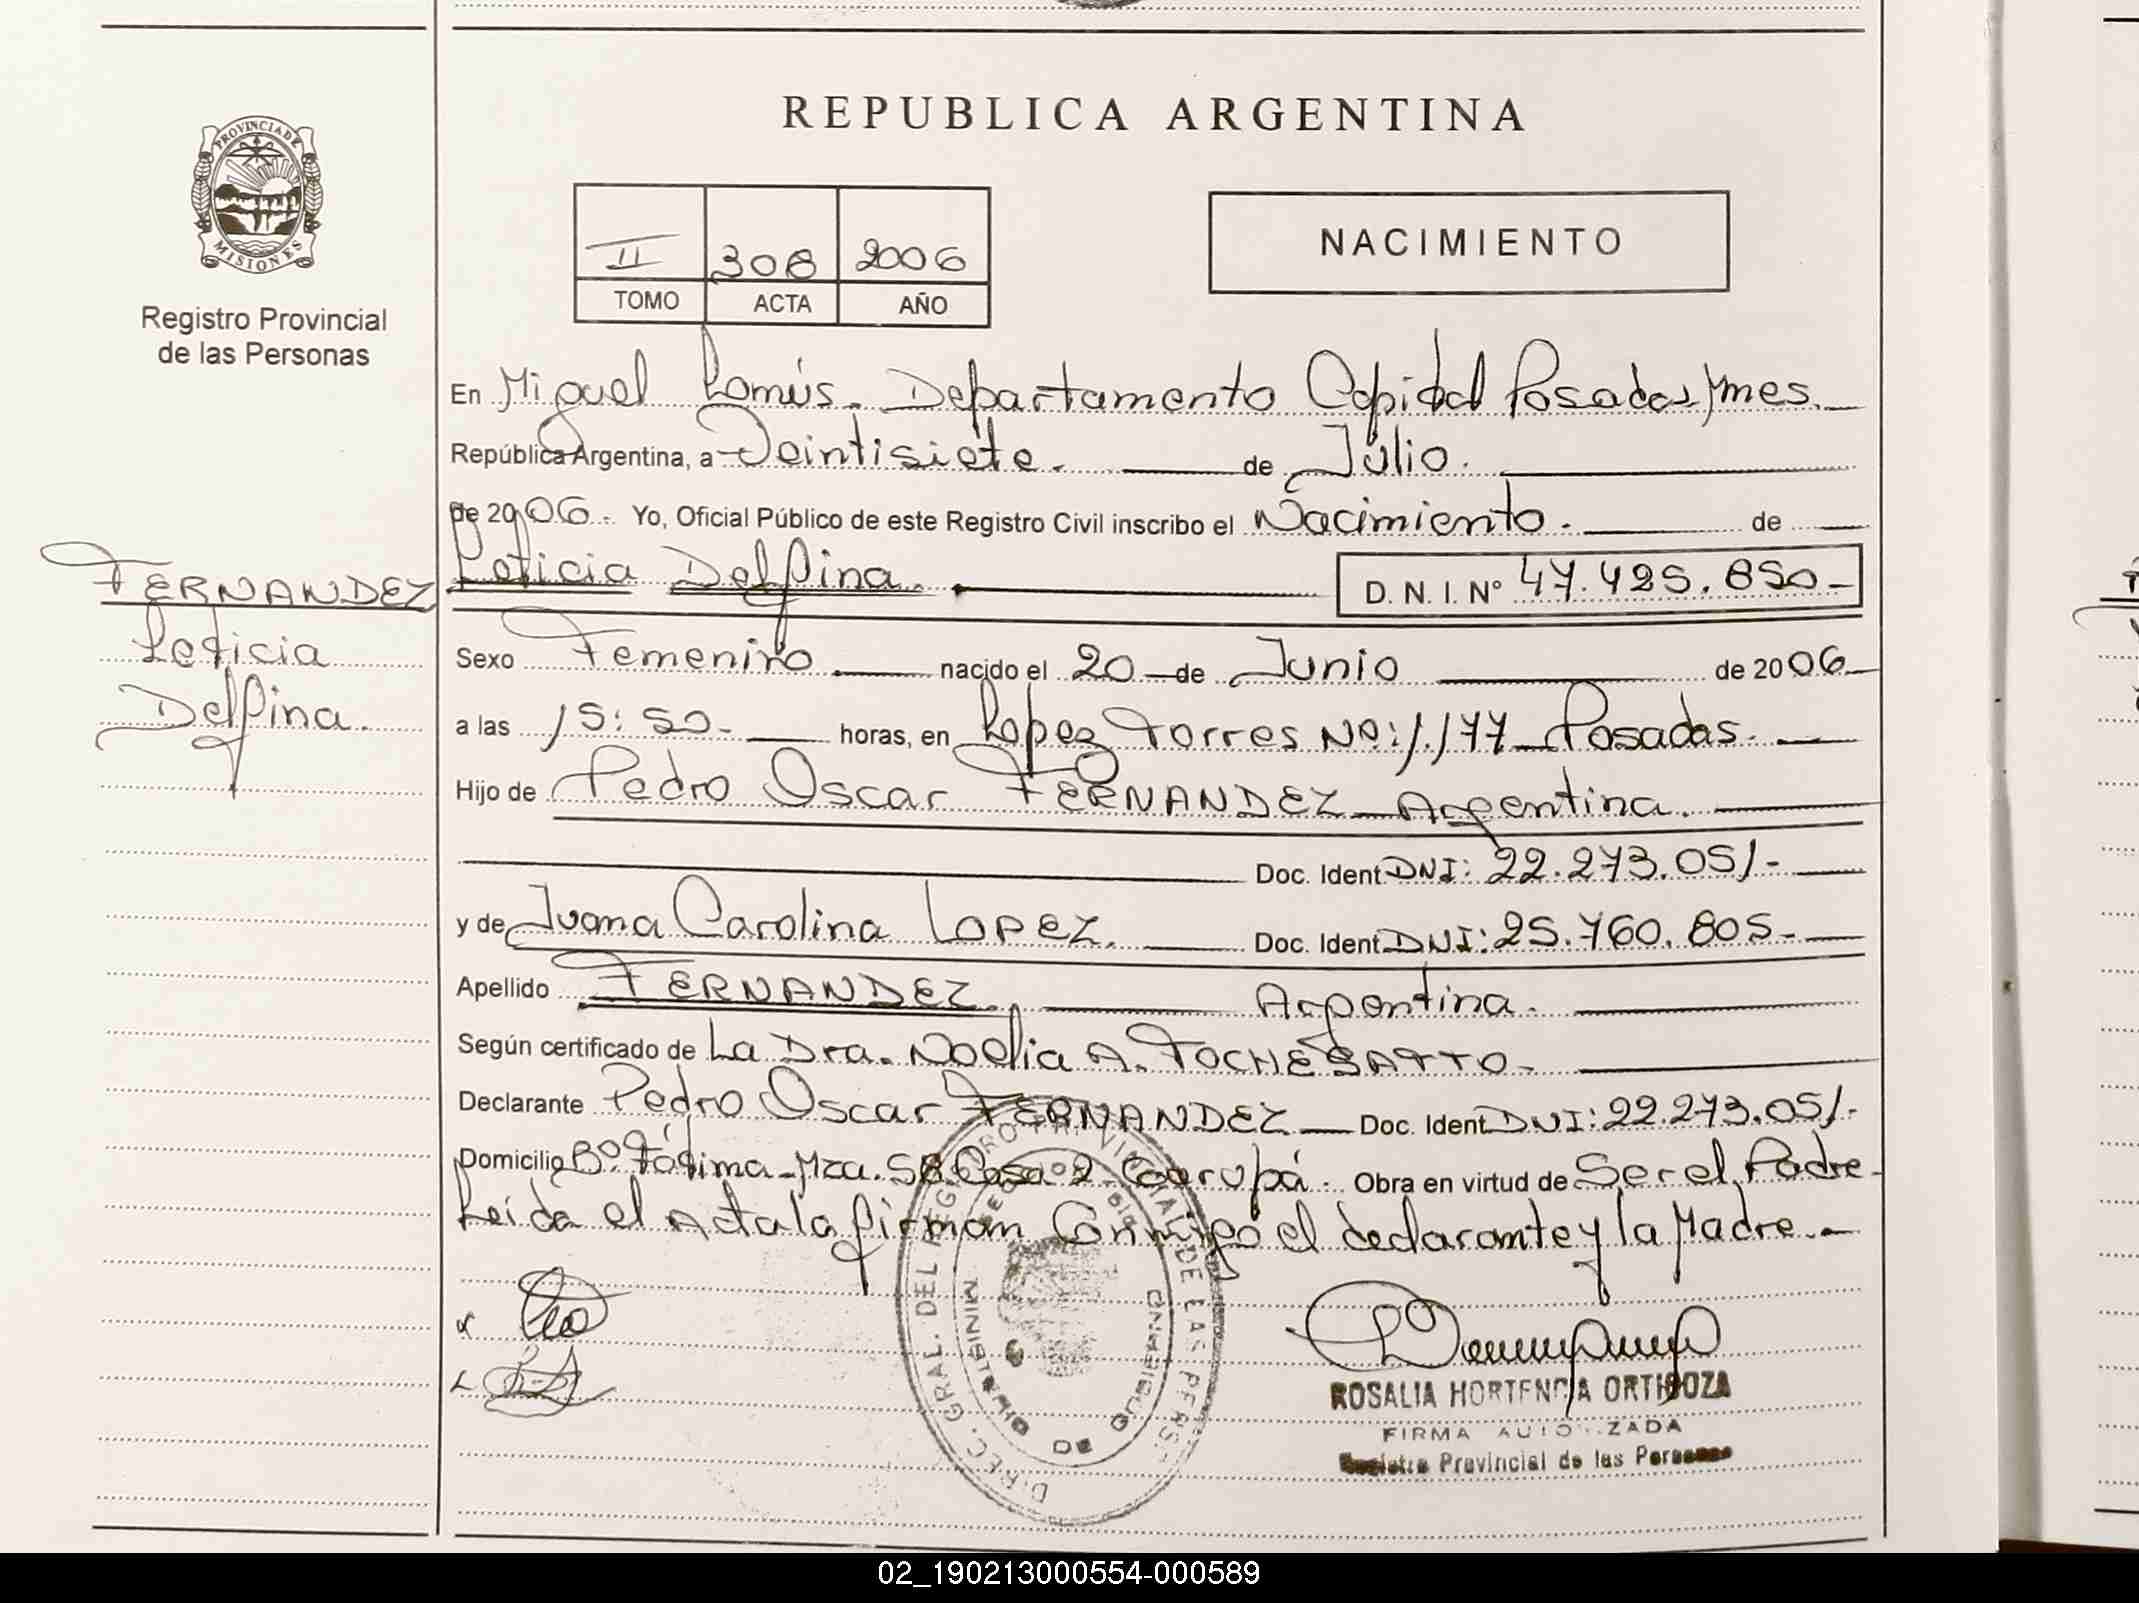 REPUBLICA ARGENTINA
PROVINCIA DE
MISIONES
Registro Provincial
de las Personas
II 308 2006
TOMO ACTA AÑO
NACIMIENTO
En Miguel Lanús. Departamento Capital Posadas, Mnes.
República Argentina, a Veintisiete. de Julio.
de 2006. Yo, Oficial Público de este Registro Civil inscribo el Nacimiento. de
Leticia Delfina. D. N. I. Nº 47.425.850-
FERNANDEZ
Leticia
Delfina.
Sexo Femenino nacido el 20 de Junio de 2006
a las 15:50- horas, en Lopez Torres Nº: 1.177 Posadas.
Hijo de Pedro Oscar FERNANDEZ Argentina.
Doc. Ident DNI: 22.273.051-
y de Juana Carolina LOPEZ. Doc. Ident. DNI: 25.760.805-
Apellido FERNANDEZ. Argentina.
Según certificado de La Dra. Noelia A. TOCHESATTO-
Declarante Pedro Oscar FERNANDEZ Doc. Ident DNI: 22.273.051-
Domicilio Bº. Fátima-Mza. 58 Casa 2 Garupá. Obra en virtud de Ser el Padre-
Leida el Acta la firman Conmigo el declarante y la Madre.-
DIREC. GRAL. DEL REGISTRO PROVINCIAL DE LAS PERS.
MINISTERIO DE GOBIERNO
ROSALIA HORTENCIA ORTIGOZA
FIRMA AUTORIZADA
Registro Provincial de las Personas
02_190213000554-000589